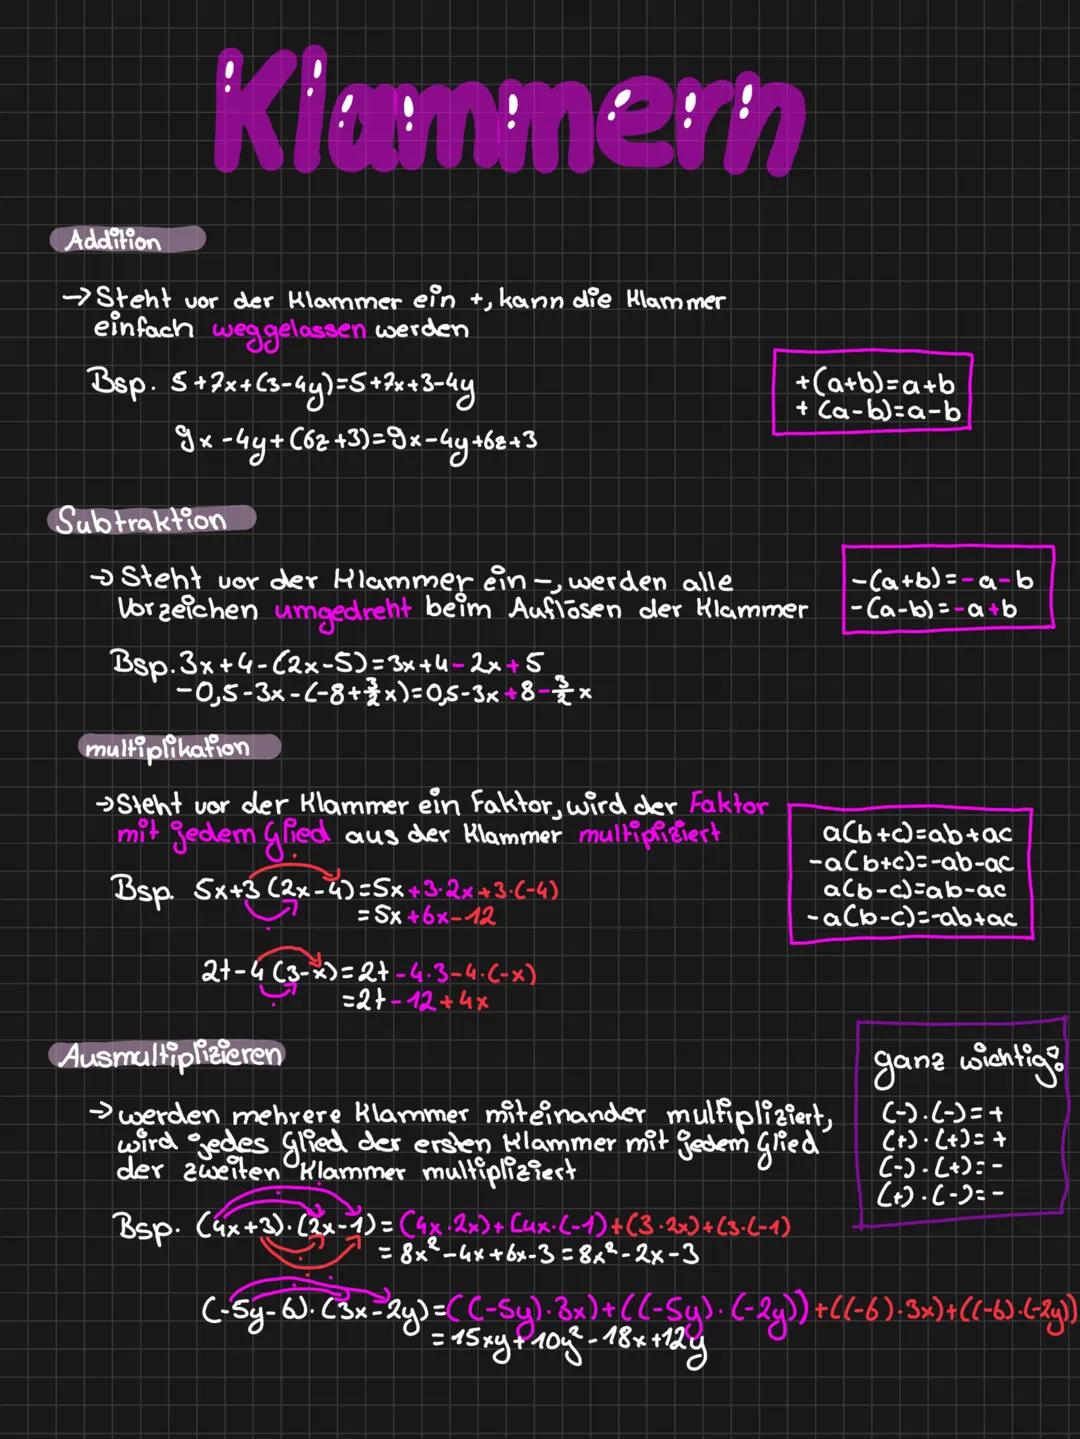 Klammern
Addition
→ Steht vor der Klammer ein +, kann die Klammer
einfach weggelassen werden
Bsp. 5+7x+(3-4y)=5+7x+3-4y
9x-4y+(6z+3)=9x-4y+6z+3
+(a+b)=a+b
+(a-b)=a-b
Subtraktion
→ Steht vor der Klammer ein -, werden alle
Vorzeichen umgedreht beim Auflösen der Klammer
-(a+b)=-a-b
-(a-b)=-a+b
Bsp. 3x+4-(2x-5)=3x+4-2x+5
-0,5-3x-(-8+3/2x)=0,5-3x+8-3/2x
multiplikation
→ Steht vor der Klammer ein Faktor, wird der Faktor
mit jedem Glied aus der Klammer multipliziert
Bsp. 5x+3(2x-4)=5x+3·2x+3·(-4)
=5x+6x-12
2t-4(3-x)=2t-4·3-4·(-x)
=2t-12+4x
a(b+c)=ab+ac
-a(b+c)=-ab-ac
a(b-c)=ab-ac
-a(b-c)=-ab+ac
Ausmultiplizieren
→ werden mehrere Klammer miteinander multipliziert,
wird jedes Glied der ersten Klammer mit jedem Glied
der zweiten Klammer multipliziert
ganz wichtig:
(-)·(-)=+
(+)·(+)=+
(-)·(+)=-
(+)·(-)=-
Bsp. (4x+3)·(2x-1)=(4x·2x)+(4x·(-1)+(3·2x)+(3·(-1)
=8x²-4x+6x-3=8x²-2x-3
(-5y-6)·(3x-2y)=((-5y)·3x)+((-5y)·(-2y))+((-6)·3x)+((-6)·(-2y))
=15xy+10y²-18x+12y